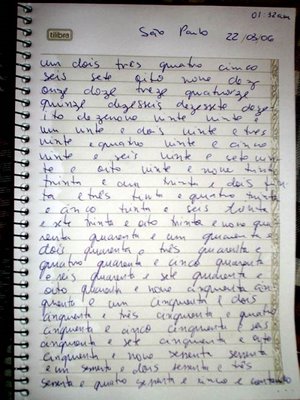 01:32am
tilibra
São Paulo
22/03/06
um dois três quatro cinco
seis sete oito nove dez
onze doze treze quatorze
quinze dezesseis dezessete dezo-
ito dezenove vinte vinte e
um vinte e dois vinte e três
vinte e quatro vinte e cinco
vinte e seis vinte e sete vin-
te e oito vinte e nove trinta
trinta e um trinta e dois trin-
ta e três trinta e quatro trinta
e cinco trinta e seis trinta
e sete trinta e oito trinta e nove qua-
renta quarenta e um quarenta e
dois quarenta e três quarenta e
quatro quarenta e cinco quarenta
e seis quarenta e sete quarenta e
oito quarenta e nove cinquenta cin-
quenta e um cinquenta e dois
cinquenta e três cinquenta e quatro
cinquenta e cinco cinquenta e seis
cinquenta e sete cinquenta e oito
cinquenta e nove sessenta sessenta
e um sessenta e dois sessenta e três
sessenta e quatro sessenta e cinco e